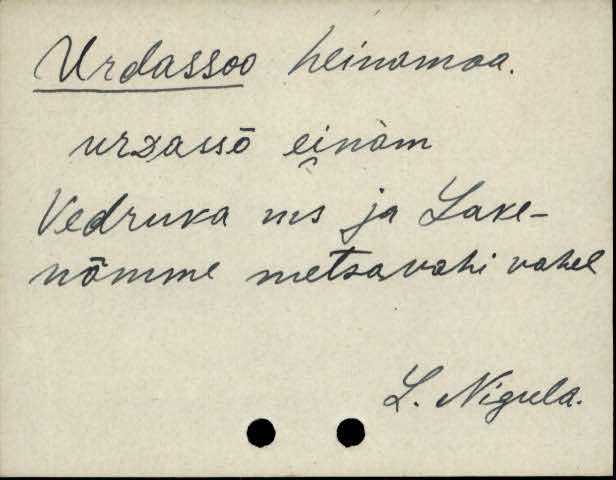 Urdassoo heinamaa.
urᴅassō ei̯nàm
Vedruka ms ja Lake-
nõmme metsavahi vahel
L. Nigula.